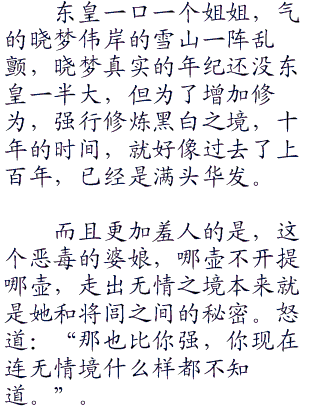 东皇一口一个姐姐，气
的晓梦伟岸的雪山一阵乱
颤，晓梦真实的年纪还没东
皇一半大，但为了增加修
为，强行修炼黑白之境，十
年的时间，就好像过去了上
百年，已经是满头华发。
而且更加羞人的是，这
个恶毒的婆娘，哪壶不开提
哪壶，走出无情之境本来就
是她和将闾之间的秘密。怒
道：“那也比你强，你现在
连无情境什么样都不知
道。”。